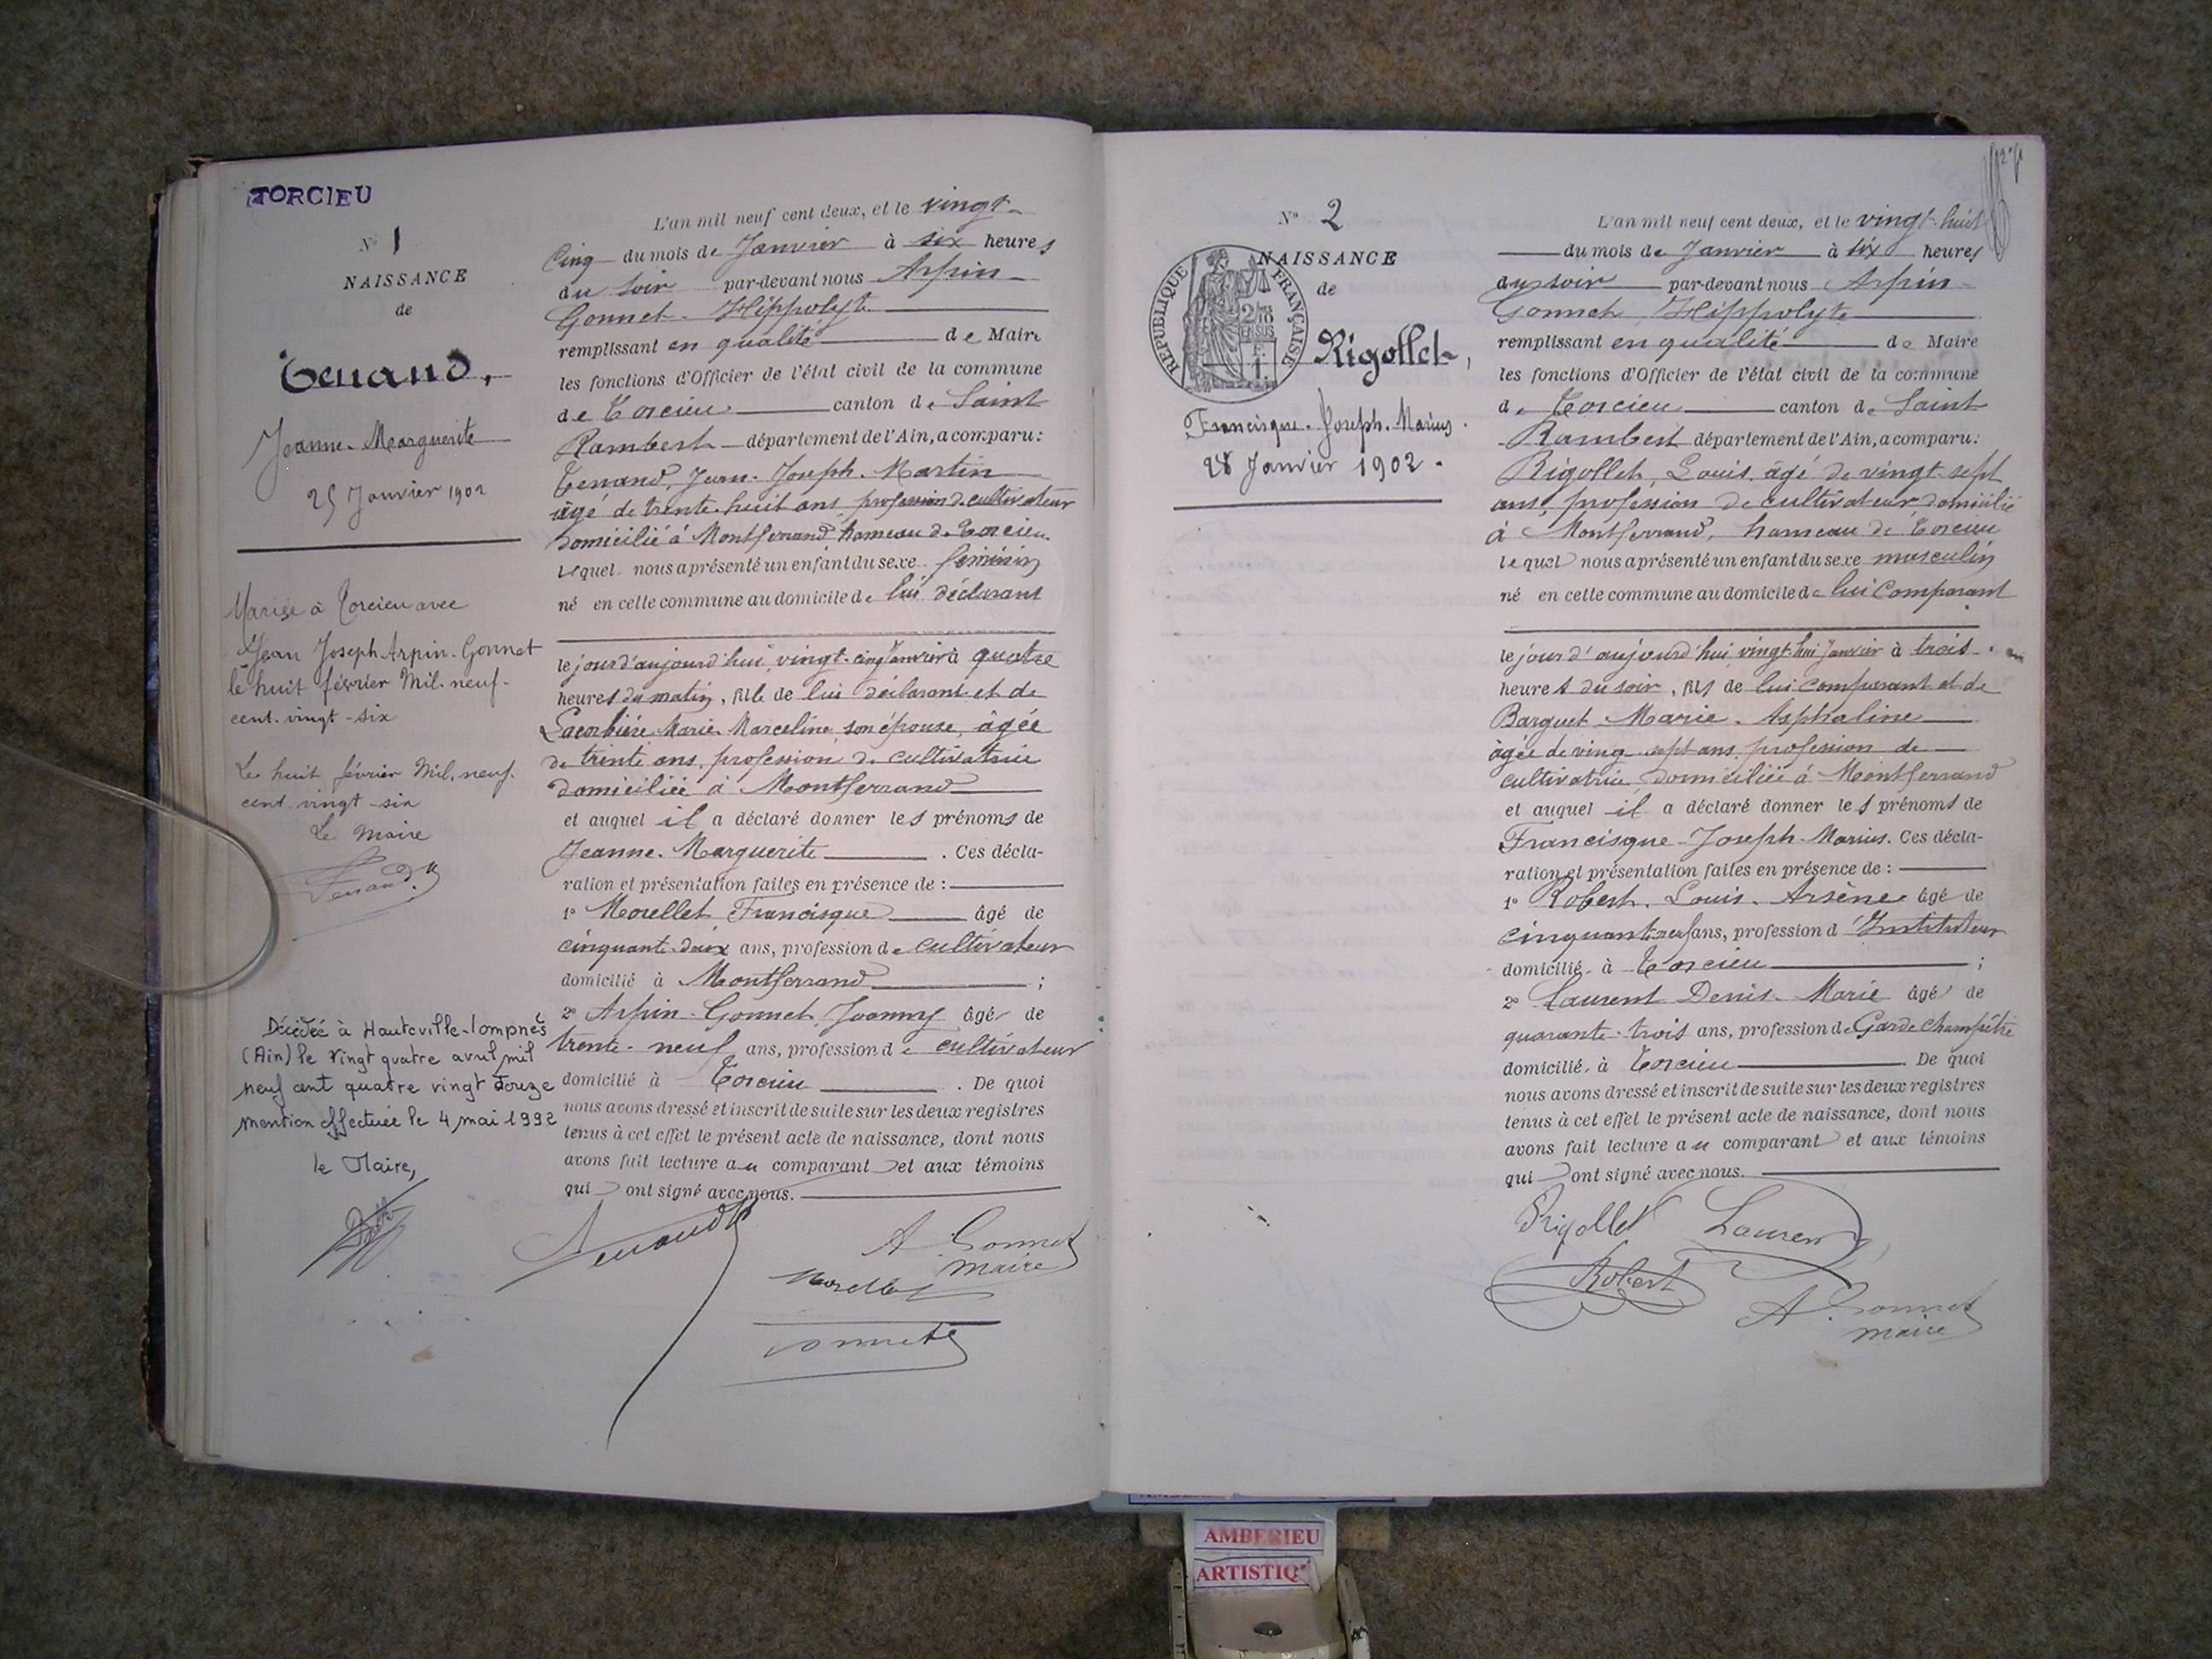 TORCIEU
N° 1
NAISSANCE
de
Tenand,
Jeanne-Marguerite
25 Janvier 1902
Mariée à Torcieu avec
Jean Joseph Arpin-Gonnet
le huit février Mil-neuf-
cent-vingt-six
Le huit février Mil-neuf-
cent-vingt-six
Le Maire
Tenand
Décédée à Hauteville-Lompnes
(Ain) le vingt quatre avril mil
neuf cent quatre vingt douze
mention effectuée le 4 mai 1992
le Maire,
L'an mil neuf cent deux, et le vingt-
cinq du mois de Janvier à six heures
du soir par-devant nous Arpin-
Gonnet-Hippolyte
remplissant en qualité de Maire
les fonctions d'Officier de l'état civil de la commune
de Torcieu canton de Saint
Rambert département de l'Ain, a comparu:
Tenand, Jean-Joseph-Martin
âgé de trente-huit ans, profession de cultivateur
domicilié à Montferrand hameau de Torcieu
lequel nous a présenté un enfant du sexe féminin
né en cette commune au domicile de lui déclarant
le jour d'aujourd'hui, vingt-cinq Janvier à quatre
heures du matin, fille de lui déclarant et de
Lacorbière Marie-Marceline, son épouse, âgée
de trente ans, profession de cultivatrice
domiciliée à Montferrand
et auquel il a déclaré donner les prénoms de
Jeanne-Marguerite. Ces décla-
ration et présentation faites en présence de :
1° Morellet Francisque âgé de
cinquante-deux ans, profession de cultivateur
domicilié à Montferrand ;
2° Arpin-Gonnet, Joanny âgé de
trente-neuf ans, profession de cultivateur
domicilié à Torcieu. De quoi
nous avons dressé et inscrit de suite sur les deux registres
tenus à cet effet le présent acte de naissance, dont nous
avons fait lecture au comparant et aux témoins
qui ont signé avec nous.
Tenand
A. Gonnet
maire
Morellet
Gonnet
N° 2
NAISSANCE
de
REPUBLIQUE FRANÇAISE
Rigollet,
Francisque-Joseph-Marius.
28 Janvier 1902.
L'an mil neuf cent deux, et le vingt-huit
du mois de Janvier à six heures
du soir par-devant nous Arpin-
Gonnet Hippolyte
remplissant en qualité de Maire
les fonctions d'Officier de l'état civil de la commune
de Torcieu canton de Saint
Rambert département de l'Ain, a comparu:
Rigollet, Louis, âgé de vingt-sept
ans, profession de cultivateur domicilié
à Montferrand, hameau de Torcieu
lequel nous a présenté un enfant du sexe masculin
né en cette commune au domicile de lui comparant
le jour d'aujourd'hui vingt-hui Janvier à trois
heures du soir, fils de lui comparant et de
Barquet Marie-Asphaline
âgée de ving-sept ans, profession de
cultivatrice, domiciliée à Montferrand
et auquel il a déclaré donner les prénoms de
Francisque-Joseph-Marius. Ces décla-
ration et présentation faites en présence de :
1° Robert-Louis-Arsène âgé de
cinquante-neuf ans, profession d'Instituteur
domicilié à Torcieu ;
2° Laurent Denis-Marie âgé de
quarante-trois ans, profession de Garde champêtre
domicilié à Torcieu. De quoi
nous avons dressé et inscrit de suite sur les deux registres
tenus à cet effet le présent acte de naissance, dont nous
avons fait lecture au comparant et aux témoins
qui ont signé avec nous.
Rigollet Laurent
Robert
A. Gonnet
maire
AMBERIEU
ARTISTIQ